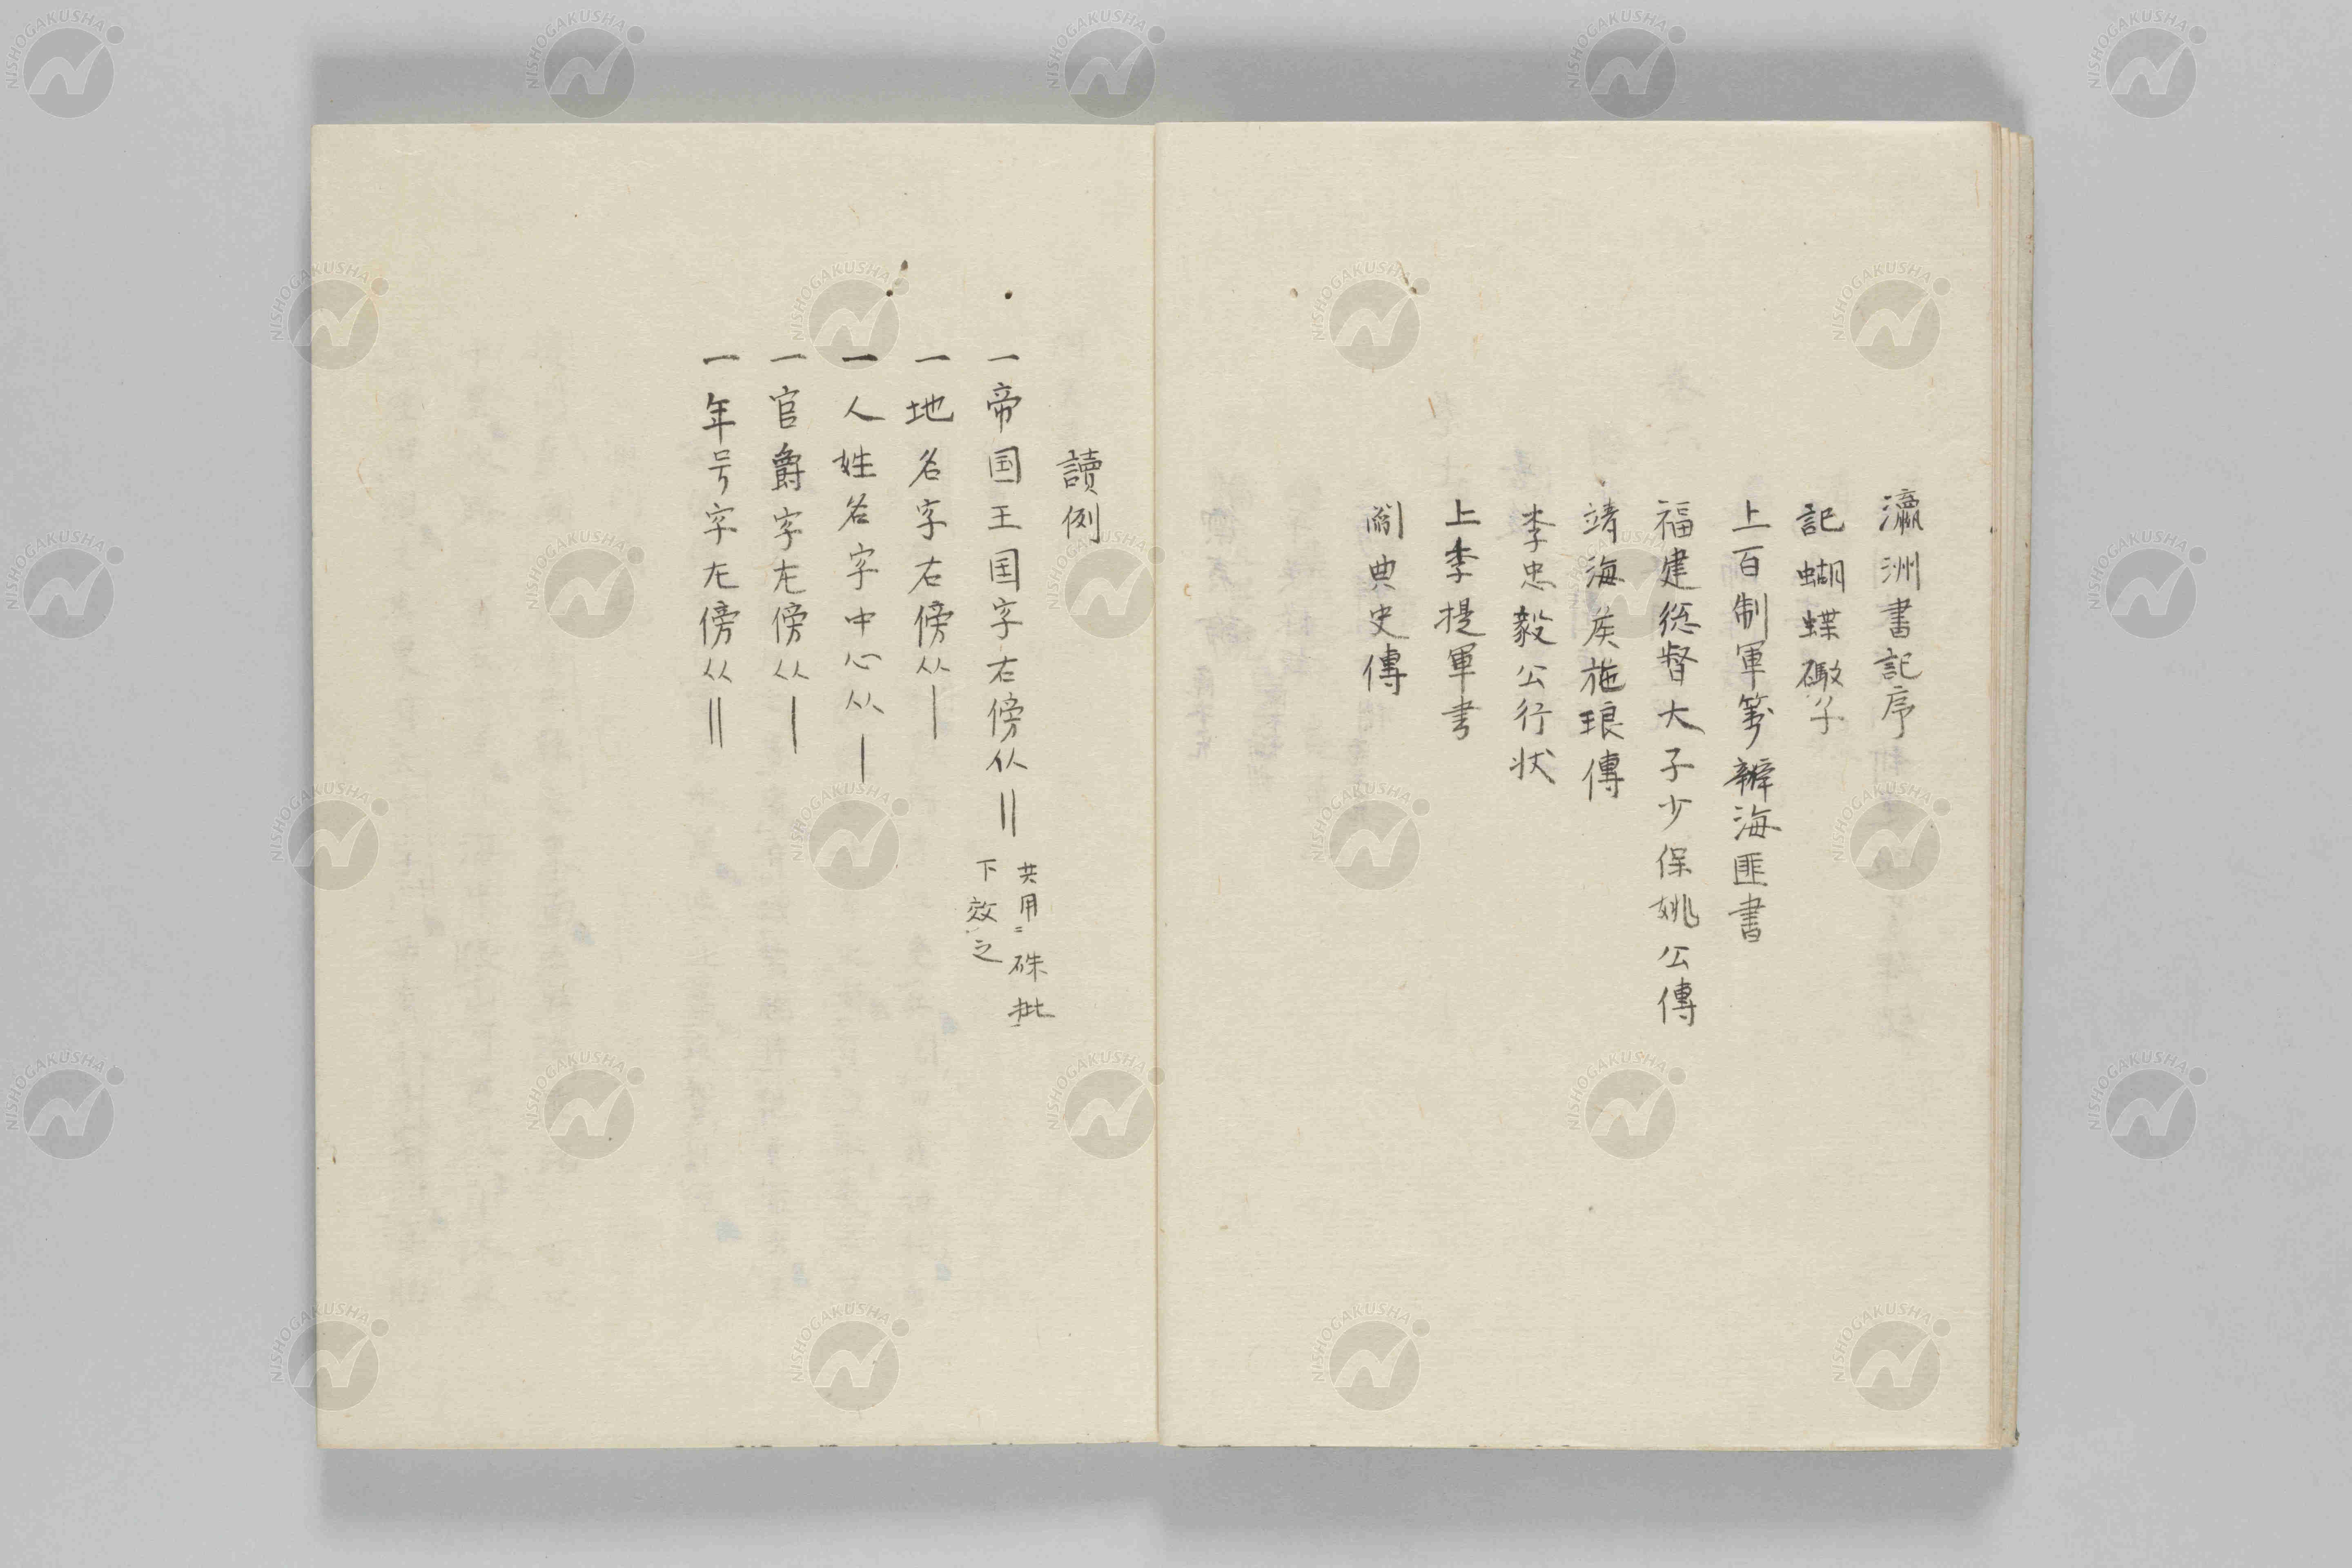 瀛洲書記序
記蝴蝶礮子
上百制軍籌辦海匪書
福建総督大子少保姚公傳
靖海矦施琅傳
李忠毅公行状
上李提軍書
閻典史傳
讀例
一帝国王国字右傍从||
共用〻硃批
下效之
一地名字右傍从|
一人姓名字中心从|
一官爵字左傍从|
一年号字左傍从||
NISHOGAKUSHA